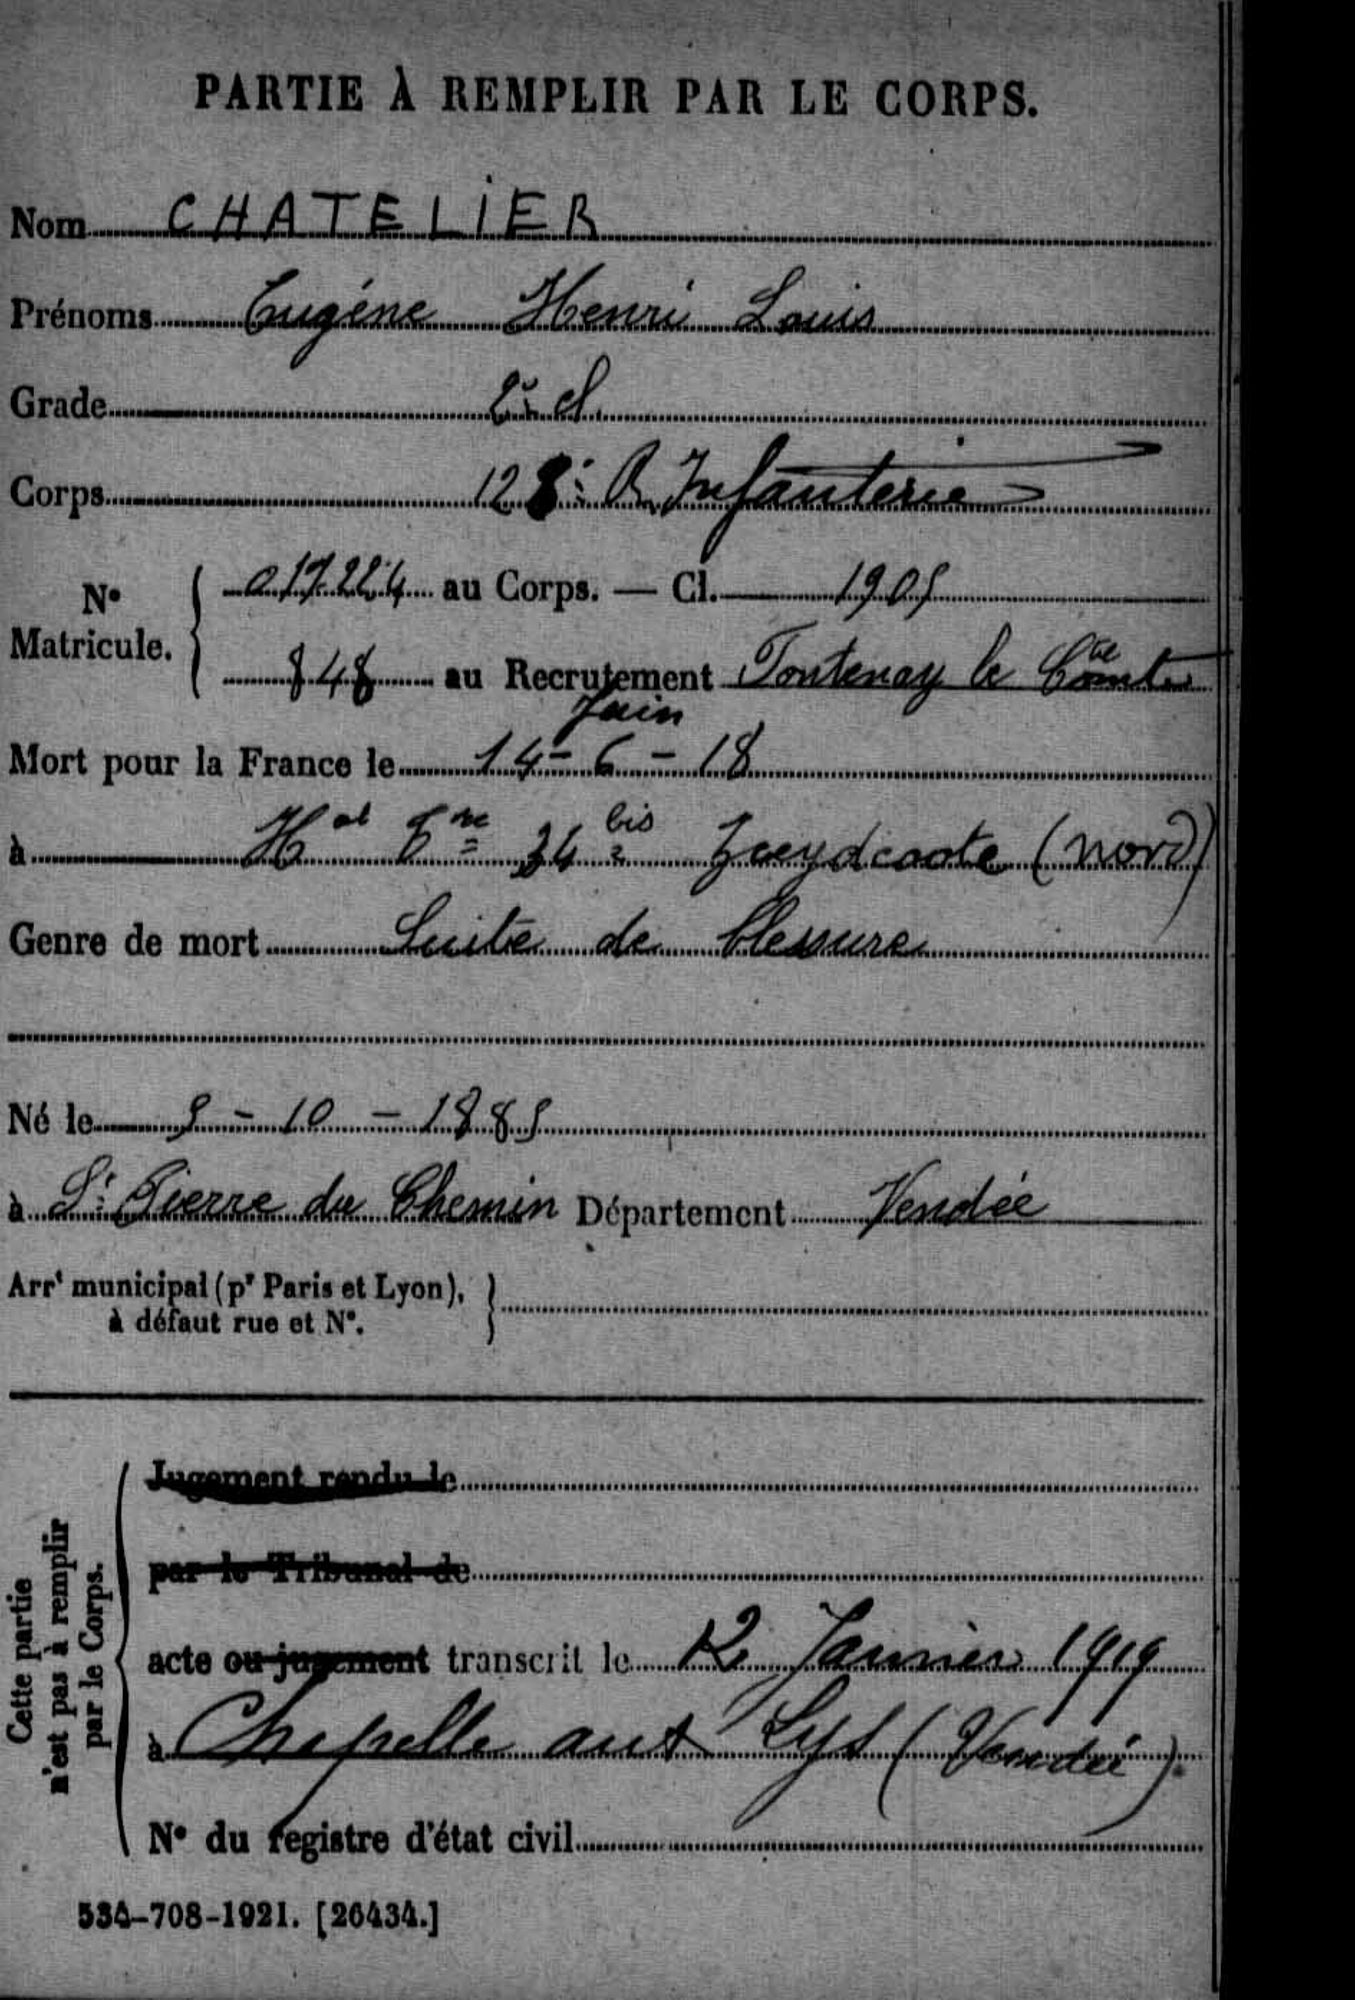 PARTIE À REMPLIR PAR LE CORPS.
Nom CHATELIER
Prénoms Eugéne Henri Louis
Grade 2e cl.
Corps 128e R. Infanterie
N° Matricule. 017224 au Corps. — Cl. 1905
848 au Recrutement Fontenay le Comte
Juin
Mort pour la France le 14 - 6 - 18
à Hal Ere 34 bis Zuydcoote (Nord)
Genre de mort Suite de blessure
Né le 5 - 10 - 1885
à St Pierre du Chemin Département Vendée
Arrt municipal (pr Paris et Lyon),
à défaut rue et N°.
Cette partie
n'est pas à remplir
par le Corps.
Jugement rendu le
par le Tribunal de
acte ou jugement transcrit le 12 Janvier 1919
à Chapelle aux Lys (Vendée).
N° du registre d'état civil
534-708-1921. [26434.]